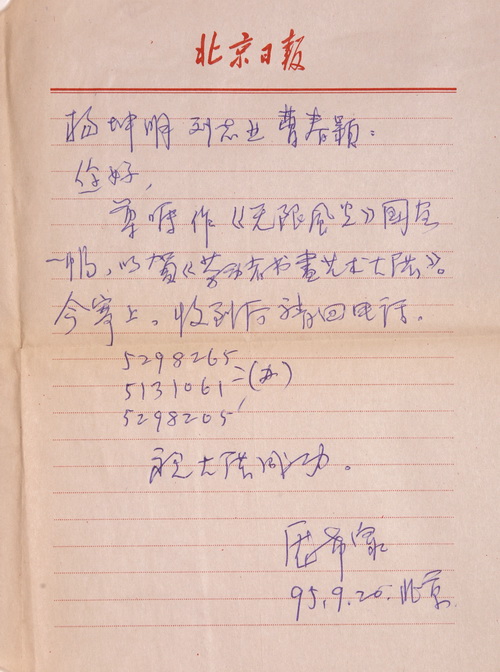 北京日报
杨坤明 刘志业 曹春颖：
您好，
尊嘱作《无限风光》国画
一幅，以贺《劳动者书画艺术大展》。
今寄上。收到后请回电话。
5298265
5131061 (办)
5298205
祝大展成功。
居希家
95.9.20.北京